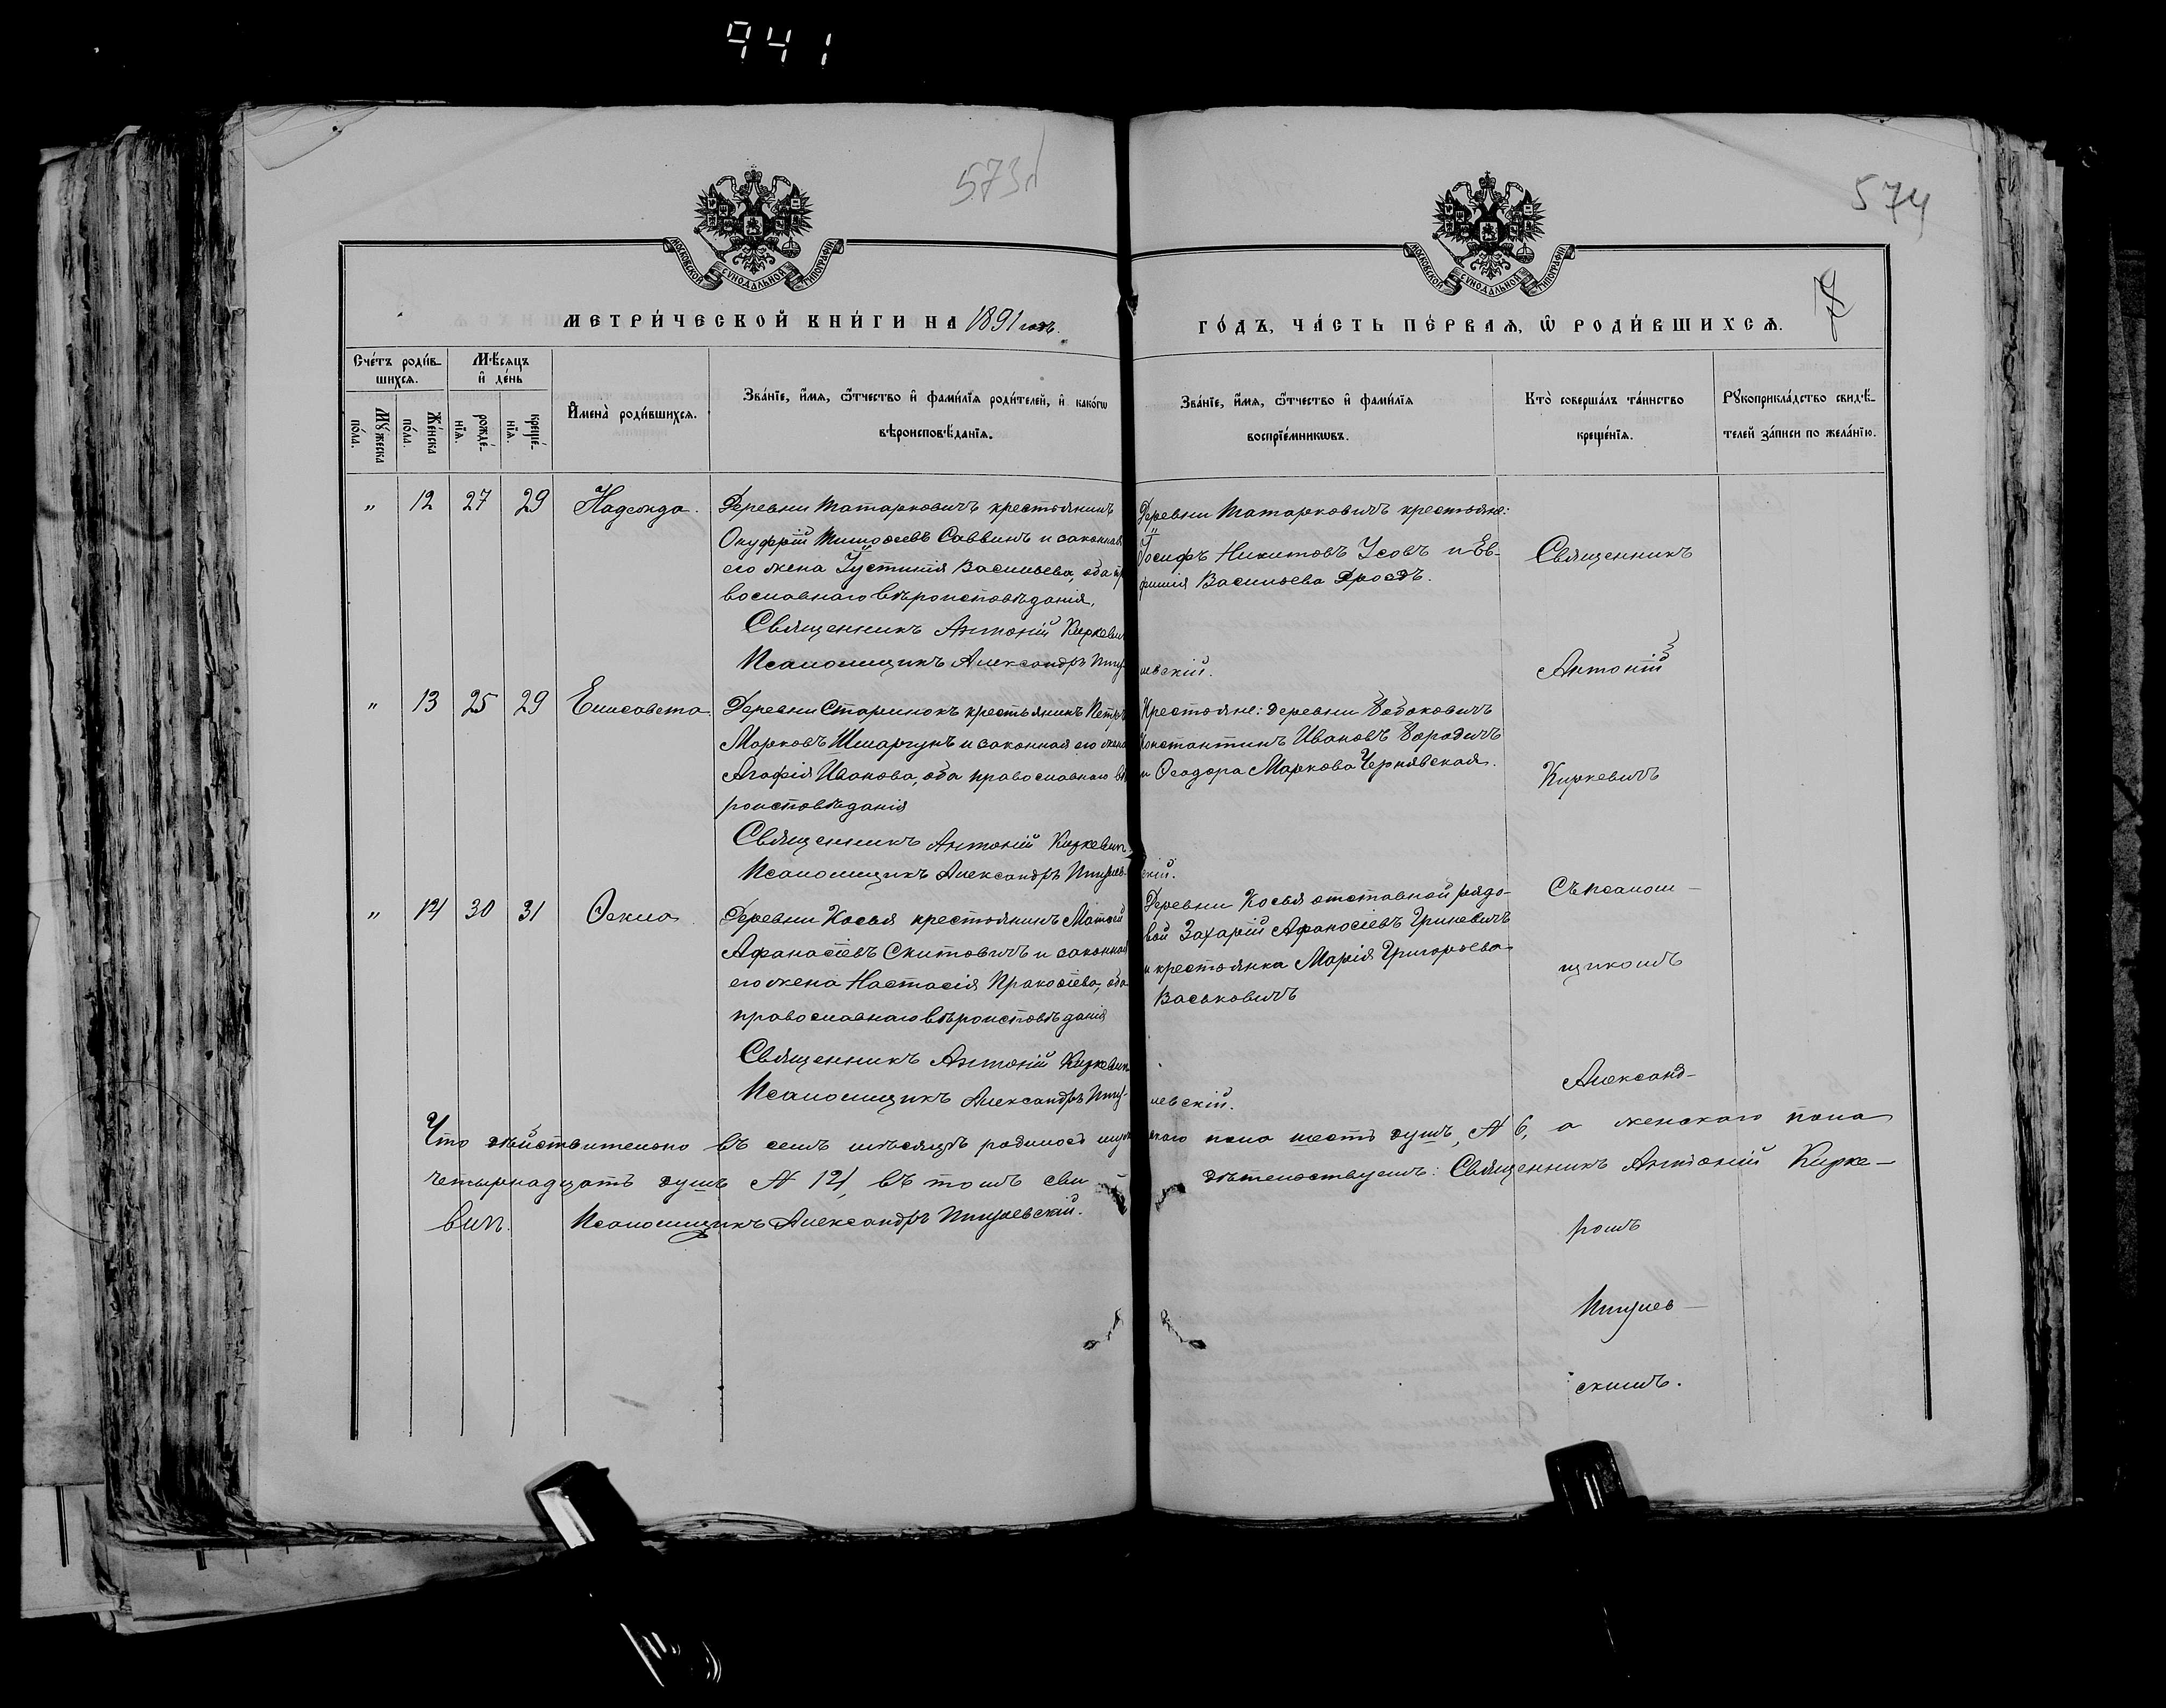 941
573
574
78
МОСКОВСКОЙ СѴНОДАЛЬНОЙ ТИПОГРАФІИ
МОСКОВСКОЙ СѴНОДАЛЬНОЙ ТИПОГРАФІИ
МЕТРИ́ЧЕСКОЙ КНИ́ГИ НА 1891 годъ.
ГО́ДЪ, ЧА́СТЬ ПЕ́РВАЯ, Ѡ РОДИ́ВШИХСЯ.
Сче́тъ роди́в-
шихся.
Мѣ́сяцъ
и де́нь
Му́жеска
по́ла.
Же́нска
по́ла.
рожде́-
нїя.
креще́-
нїя.
Имена̀ роди́вшихся.
Зва́нїе, и́мя, ѻ́тчество и фами́лїя роди́телей, и како́гѡ
вѣроисповѣ́данїя.
Зва́нїе, и́мя, ѻ́тчество и фами́лїя
воспрїе́мникѡвъ.
Кто̀ соверша́лъ та́инство
креще́нїя.
Рꙋкоприкла́дство свидѣ́-
телей за́писи по жела́нїю.
" 12 27 29 Надежда.
Деревни Татарковичъ крестьянинъ
Онуфрій Тимоѳеевъ Саввинъ и законная
его жена Іустинія Васильева, оба пра
вославнаго вѣроисповѣданія.
Священникъ Антоній Киркевич
Псаломщикъ Александръ Пиг левскій.
Деревни Татарковичъ крестьяне:
Іосифъ Никитовъ Усовъ и Ев-
фимія Васильева Дроздъ.
" 13 25 29 Елисавета.
Деревни Старинокъ крестьянинъ Петръ
Марковъ Шмаргунъ и законная его жена
Агафія Иванова, оба православнаго вѣ
роисповѣданія
Священникъ Антоній Киркевич
Псаломщикъ Александръ скій.
Крестьяне: деревни
Константинъ Ивановъ Бородичъ
и Ѳеодора Маркова Чернявская.
" 14 30 31 Ѳекла
Деревни Косья крестьянинъ Матѳей
Афанасіевъ Скитовичъ и законная
его жена Настасія Пракопіева, оба
православнаго вѣроисповѣданія
Священникъ Антоній Киркевич
Псаломщикъ Александръ левскій.
Деревни Косья отставной рядо-
вой Захарій Афанасіевъ Гриневичъ
и крестьянка Марія Григорьева
Васьковичъ
Священникъ
Антоній
Киркевичъ
Съ псалом-
щикомъ
Александ-
ромъ
скимъ.
Что дѣйствительно въ семъ мѣсяцѣ родилось мужескаго пола шесть душъ, № 6, а женскаго пола
четырнадцать душъ № 14, въ томъ свидѣтельствуемъ: Священникъ Антоній Кирке-
вич. Псаломщикъ Александръ